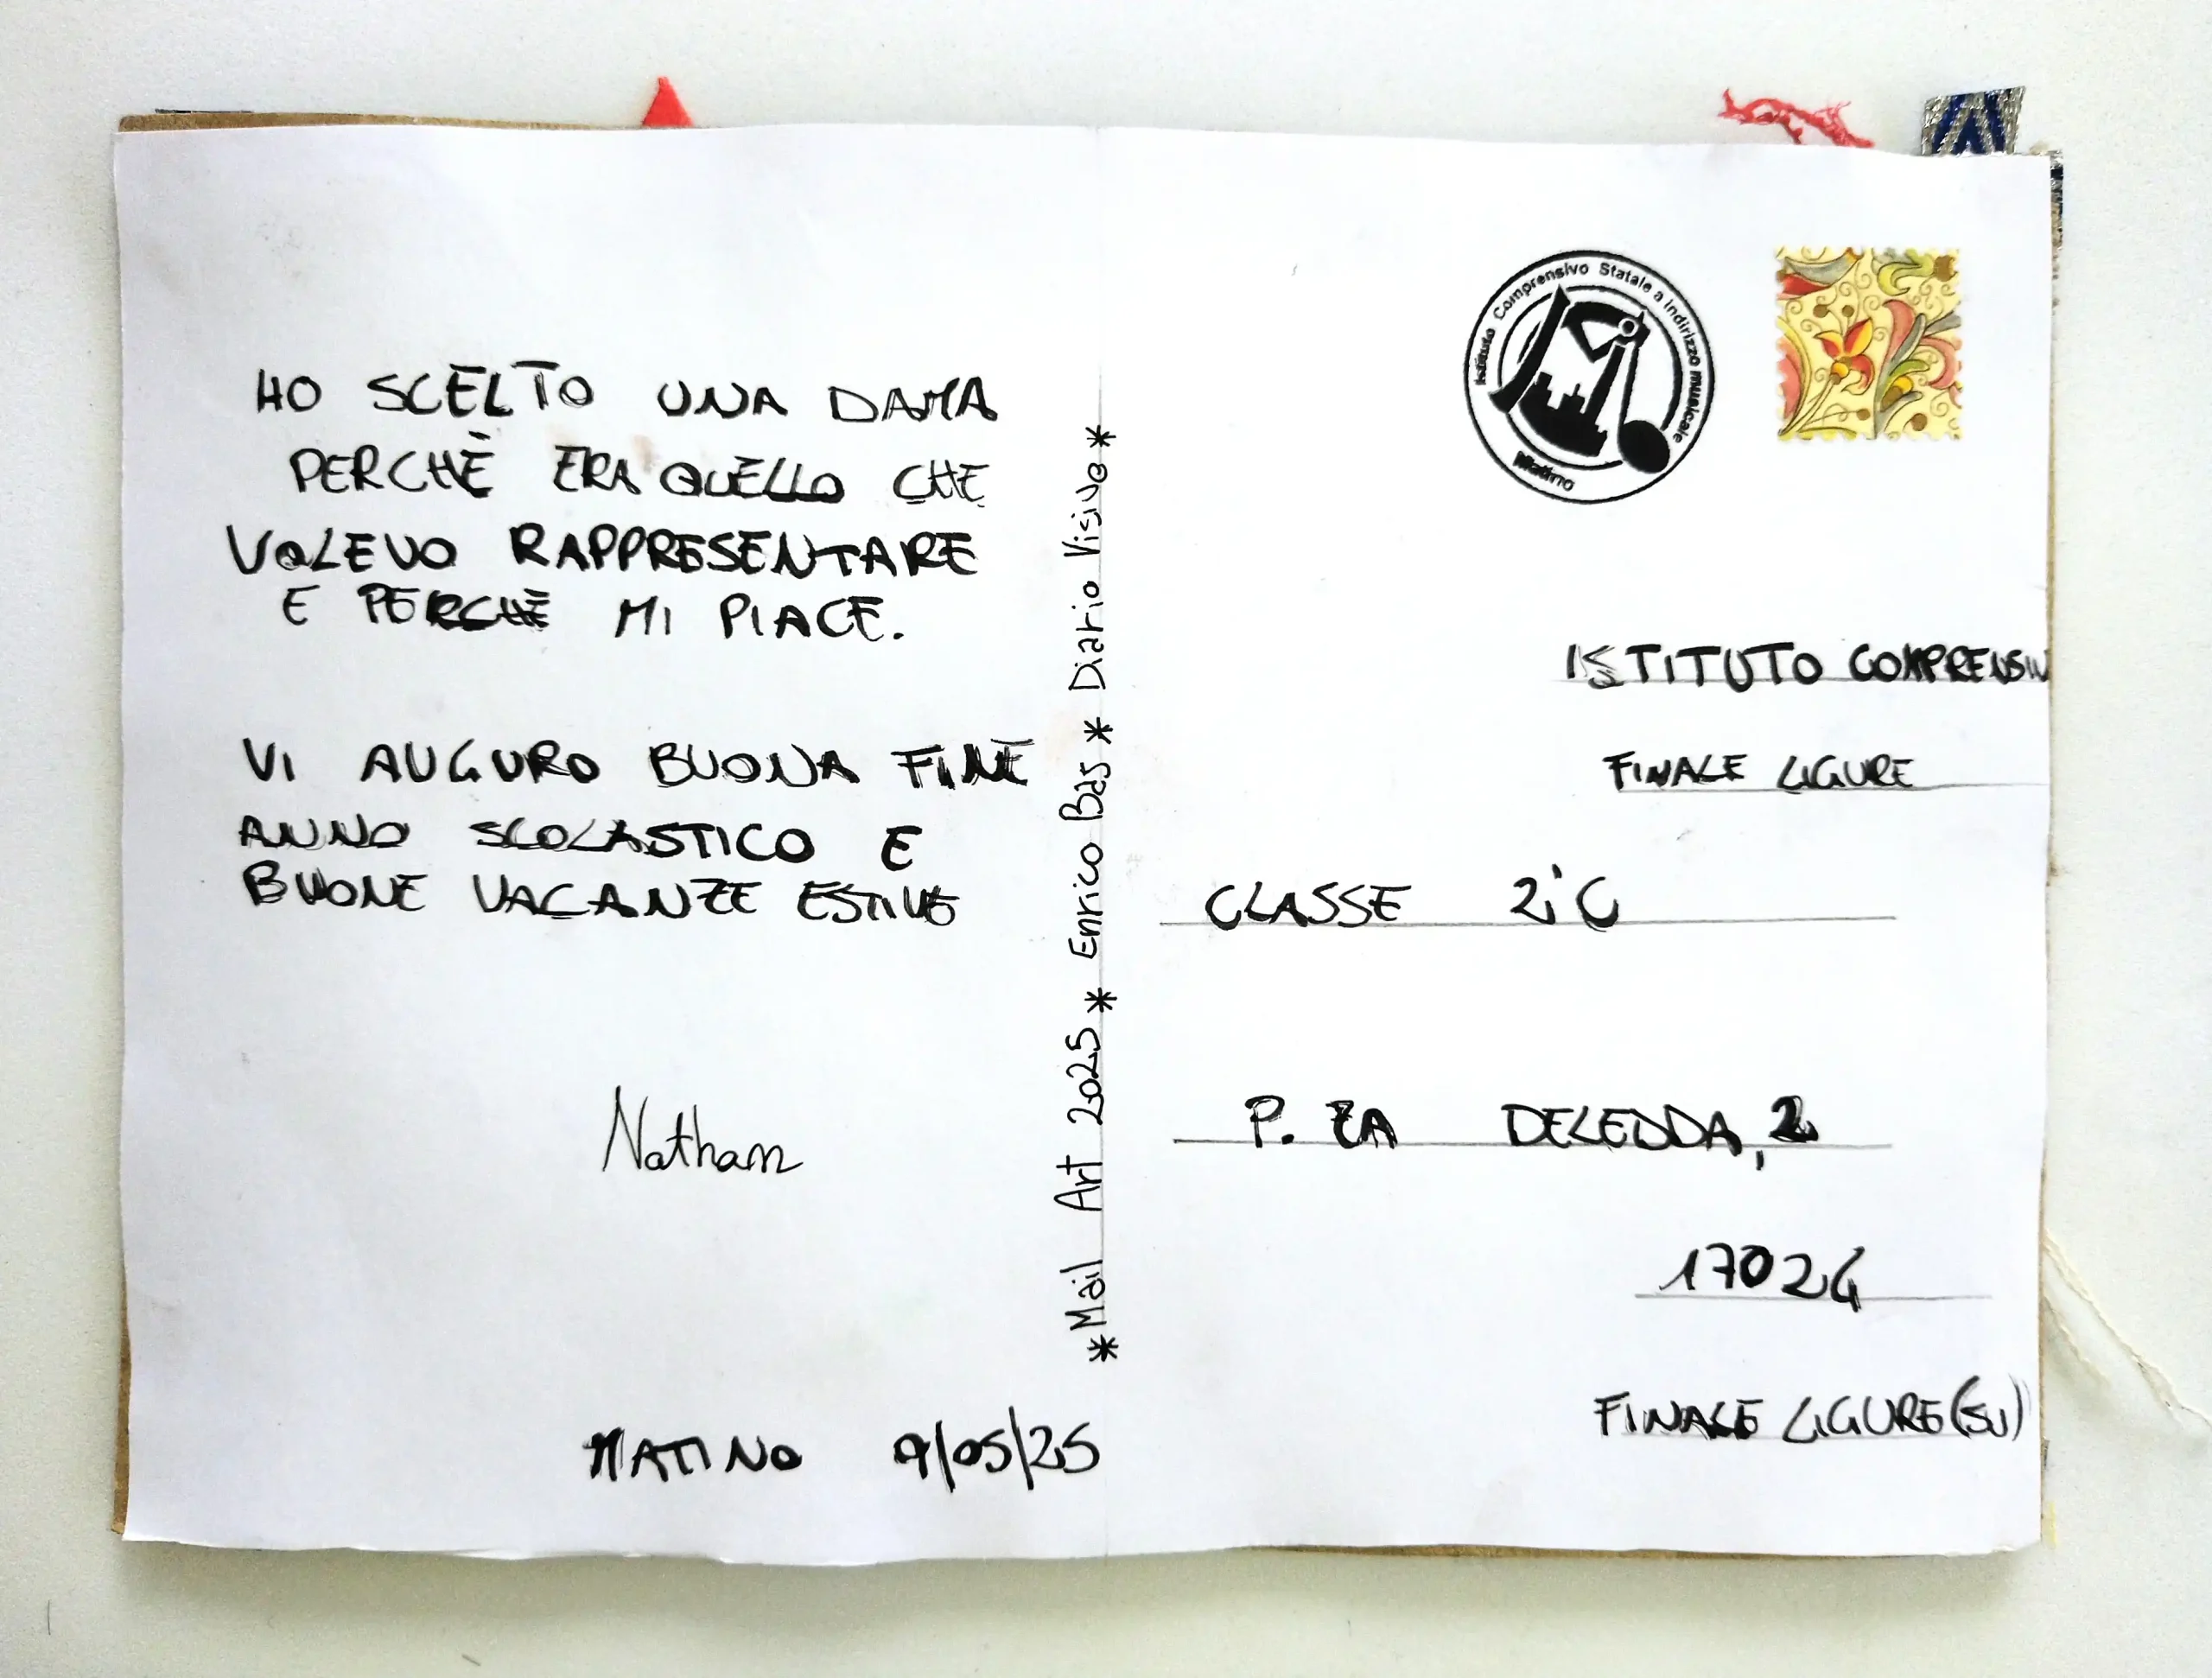 HO SCELTO UNA DAMA
PERCHÈ ERA QUELLO CHE
VOLEVO RAPPRESENTARE
E PERCHÈ MI PIACE.
VI AUGURO BUONA FINE
ANNO SCOLASTICO E
BUONE VACANZE ESTIVE
Nathan
MATINO 9/05/25
*Mail Art 2025* Enrico Bas* Diario Visivo*
Istituto Comprensivo Statale a indirizzo musicale
Matino
ISTITUTO COMPRENSIV
FINALE LIGURE
CLASSE 2°C
P.ZA DELEDDA, 2
17024
FINALE LIGURE (SV)